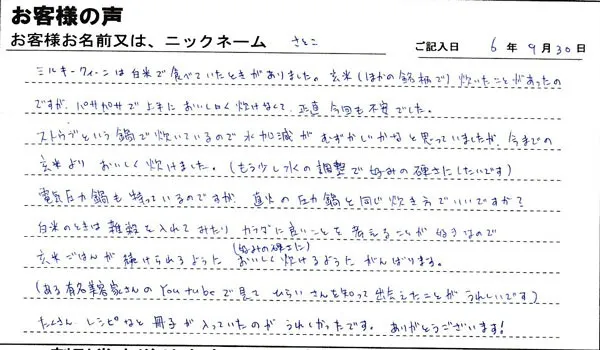 お客様の声
お客様お名前又は、ニックネーム さとこ ご記入日 6年 9月30日
ミルキークィーンは白米で食べていたときがありました。玄米(ほかの銘柄で)炊いたことがあったの
ですが、パサパサで上手においしく炊けなくて、正直今回も不安でした。
ストウブという鍋で炊いているので水加減がむずかしいかなと思っていましたが、今までの
玄米よりおいしく炊けました。(もう少し水の調整で好みの硬さにしたいです)
電気圧力鍋も持っているのですが、直火の圧力鍋と同じ炊き方でいいですか?
白米のときは雑穀を入れてみたり カラダに良いことを考えることが好きなので
(好みの硬さに)
玄米ごはんが続けられるように おいしく炊けるようように がんばります。
(ある有名美容家さんのYouTubeで見て ひらいさんを知って出会えたことがうれしいです)
たくさん レシピなど 冊子が入っていたのが うれしかったです。ありがとうございます!